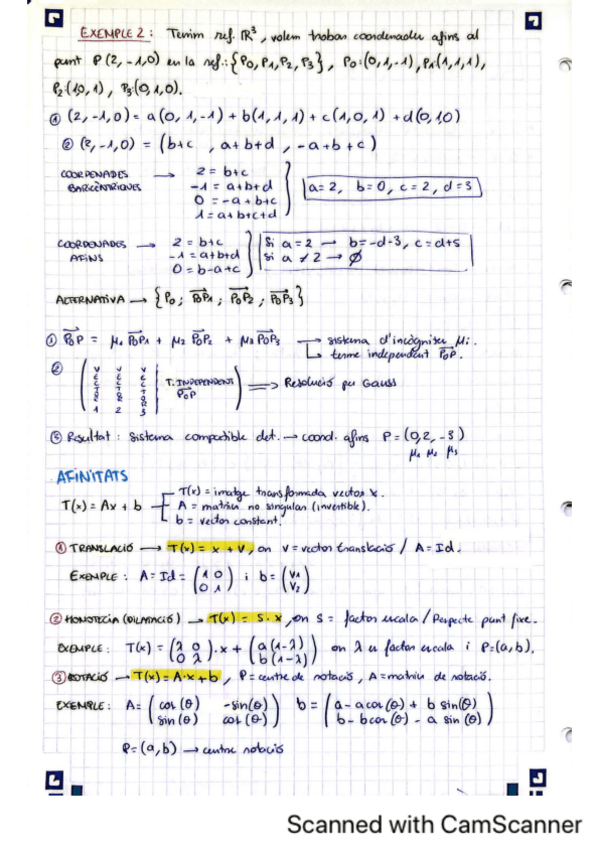 EXEMPLE 2: Tenim ref. ℝ³, volem trobar coordenades afins al
punt P(2,-1,0) en la ref.: {P0, P1, P2, P3}, P0:(0,1,-1), P1:(1,1,1),
P2:(1,0,1), P3:(0,1,0).
① (2,-1,0) = a(0,1,-1) + b(1,1,1) + c(1,0,1) + d(0,1,0)
② (2,-1,0) = (b+c , a+b+d , -a+b+c)
COORDENADES BARICÈNTRIQUES → 2 = b+c
-1 = a+b+d
0 = -a+b+c
1 = a+b+c+d
a=2, b=0, c=2, d=-3
COORDENADES AFINS → 2 = b+c
-1 = a+b+d
0 = b-a+c
Si a=2 → b=-d-3, c=d+5
Si a≠2 → ∅
ALTERNATIVA → {P0; P0P1; P0P2; P0P3}
① P0P = μ1 P0P1 + μ2 P0P2 + μ3 P0P3 → sistema d'incògnites μi.
↳ terme independent P0P.
② (VECTOR 1 VECTOR 2 VECTOR 3 | T. INDEPENDENT P0P) ⟹ Resolució per Gauss
③ Resultat: sistema compatible det. → coord. afins P = (0,2,-3)
μ1 μ2 μ3
AFINITATS
T(x) = Ax + b
T(x) = imatge transformada vector x.
A = matriu no singular (invertible).
b = vector constant.
① TRANSLACIÓ → T(x) = x + v, on v = vector translació / A = Id.
EXEMPLE: A = Id = (1 0
0 1) i b = (v1
v2)
② HOMOTECIA (DILATACIÓ) → T(x) = S·x, on S = factor escala / Respecte punt fixe.
EXEMPLE: T(x) = (λ 0
0 λ) · x + (a(1-λ)
b(1-λ)) on λ és factor escala i P=(a,b).
③ ROTACIÓ → T(x) = A·x + b, P = centre de rotació, A = matriu de rotació.
EXEMPLE: A = (cos(θ) -sin(θ)
sin(θ) cos(θ)) b = (a - a cos(θ) + b sin(θ)
b - b cos(θ) - a sin(θ))
P = (a,b) → centre rotació
Scanned with CamScanner